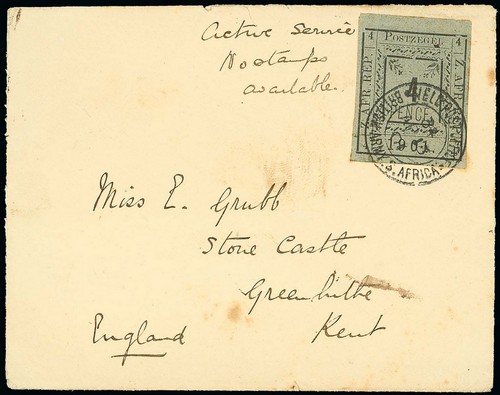 Active Service
No stamps
available.
POSTZEGEL
4 4
Z. AFR. REP. Z. AFR. REP.
4
PENCE
FIELD POST OFFICE
BRITISH ARMY
S. AFRICA
Miss E. Grubb
Stone Castle
Greenhithe
Kent
England